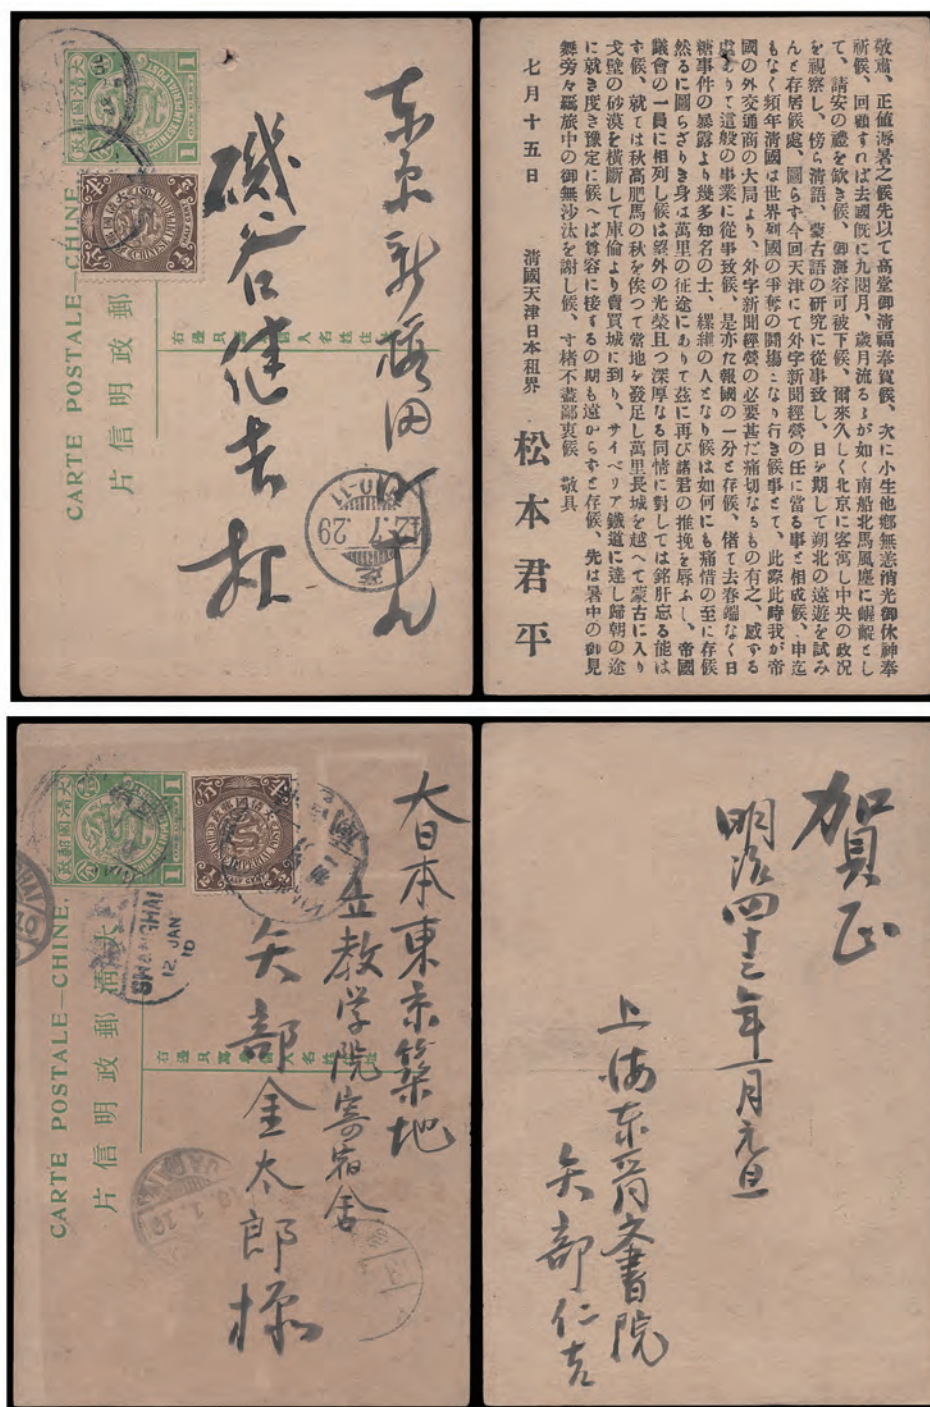 大清國郵政
CARTE POSTALE—CHINE.
郵政明信片
右邊只寫收信人名姓住址
CHINESE IMPERIAL POST
HALF CENT
東京新橋
磯谷
42.7.29
敬肅、正値溽暑之候先以て高堂御清福奉賀候、次に小生他鄕無恙消光御休神奉
祈候、回顧すれば去國旣に九閱月、歲月流るゝが如く南船北馬風塵に齷齪とし
て、請安の禮を欽き候、御海容可被下候、爾來久しく北京に客寓し中央の政況
を視察し、傍ら清語、蒙古語の研究に從事致し、日を期して朔北の遠遊を試み
んと存居候處、圖らす今回天津にて外字新聞經營の任に當る事と相成候、申迄
もなく頻年清國は世界列國の爭奪の鬪場となり行き候事とて、此際此時我が帝
國の外交通商の大局より、外字新聞經營の必要甚だ痛切なるもの有之、感する
處ありて這般の事業に從事致候、是亦た報國の一分と存候、偖て去春端なく日
糖事件の暴露より幾多知名の士、縲絏の人となり候は如何にも痛惜の至に存候
然るに圖らざりき身は萬里の征途にありて茲に再び諸君の推挽を辱ふし、帝國
議會の一員に相列し候は望外の光榮且つ深厚なる同情に對しては銘肝忘る能は
す候、就ては秋高肥馬の秋を俟つて當地を發足し萬里長城を越へて蒙古に入り
戈壁の砂漠を橫斷して庫倫より賣買城に到り、サイベリア鐵道に達し歸朝の途
に就き度き豫定に候へば尊容に接するの期も遠からずと存候、先は暑中の御見
舞旁々羈旅中の御無沙汰を謝し候、寸楮不盡鄙衷候 敬具
七月十五日
清國天津日本租界
松本君平
大清國郵政
CARTE POSTALE—CHINE.
大清郵政明信片
右邊只寫收信人名姓住址
CHINESE IMPERIAL POST
HALF CENT
SHANGHAI
12 JAN
10
大日本東京築地
立教学院寄宿舍
矢部金太郎様
賀正
明治四十三年一月元旦
上海東亞同文書院
矢部仁吉